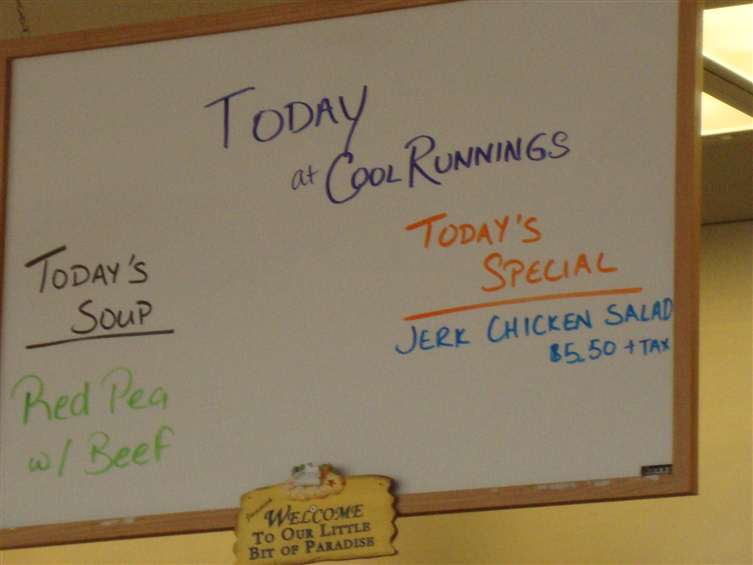 TODAY
at COOL RUNNINGS
TODAY'S
SOUP
Red Pea
w/ Beef
TODAY'S
SPECIAL
JERK CHICKEN SALAD
$5.50 + TAX
WELCOME
TO OUR LITTLE
BIT OF PARADISE